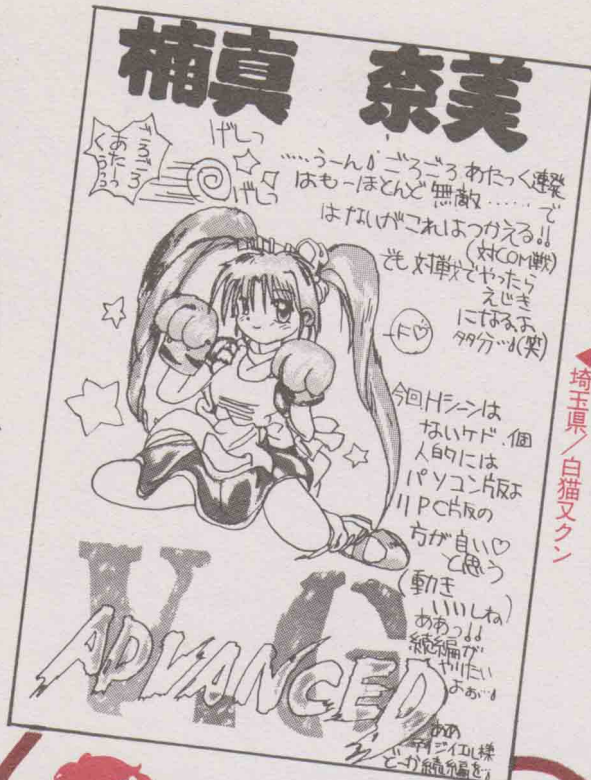 楠真 奈美
ごろごろ
あたーっ
くううっ
げしっ
げしっ
‥‥うーん♪ ごろごろ あたっく連発
はもーほとんど無敵……で
はないがこれはつかえる!!
(対COM戦)
でも対戦でやったら
えじき
になるよ
多分…♪(笑)
今回Hシーンは
ないケド、個
人的には
パソコン版よ
りPC版の
方が良い♡
と思う
(動き
いいしね)
ああっ♪♪
続編が
やりたい
よぉ…♪
V.G
ADVANCED
ああ
様
どーか続編を…
埼玉県/白猫又クン